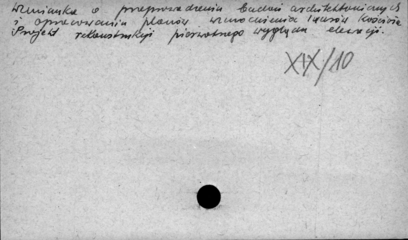 Wzmianka o przeprowadzeniu badań architektonicznych
i opracowaniu planów wzmocnienia murów kościoła
Projekt rekonstrukcji pierwotnego wyglądu elewacji.
XIX/10